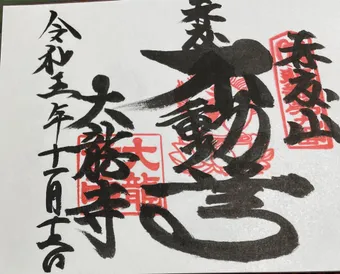 再度山
奉拝
不動尊
大龍寺
大龍
令和五年十一月十六日